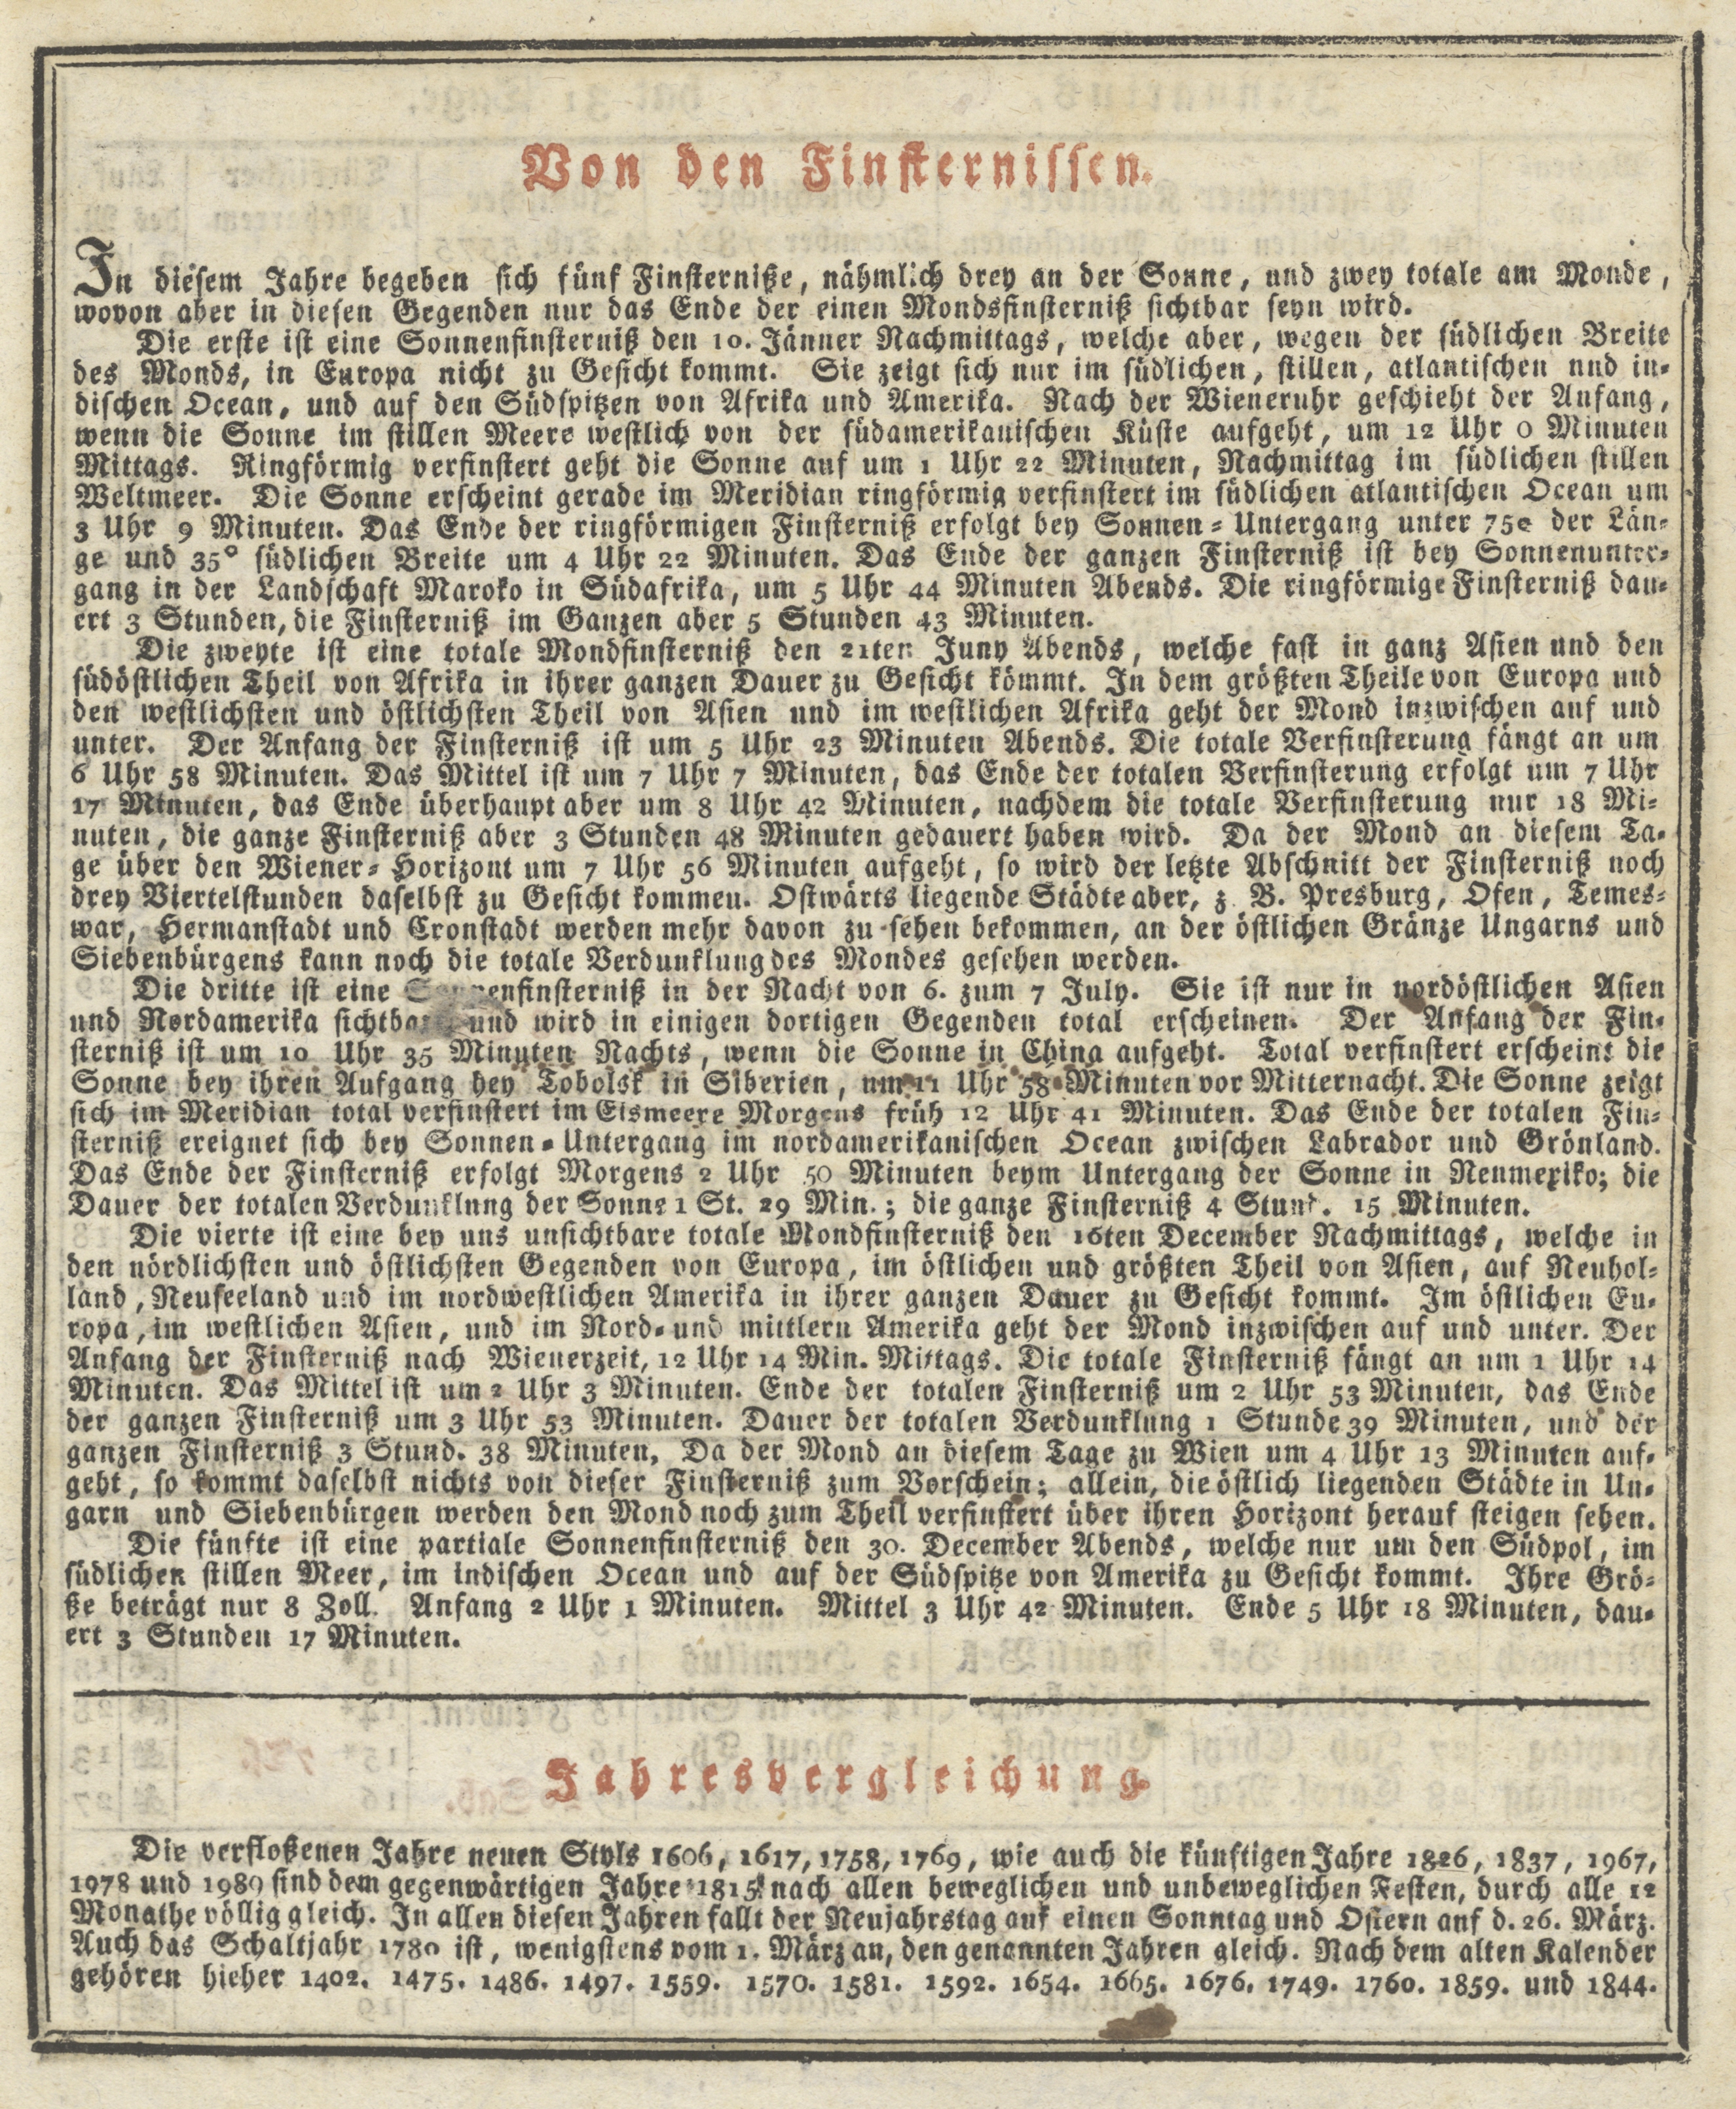 Von den Finsternissen.
In diesem Jahre begeben sich fünf Finsterniße, nähmlich drey an der Sonne, und zwey totale am Monde,
wovon aber in diesen Gegenden nur das Ende der einen Mondsfinsterniß sichtbar seyn wird.
Die erste ist eine Sonnenfinsterniß den 10. Jänner Nachmittags, welche aber, wegen der südlichen Breite
des Monds, in Europa nicht zu Gesicht kommt. Sie zeigt sich nur im südlichen, stillen, atlantischen und in-
dischen Ocean, und auf den Südspitzen von Afrika und Amerika. Nach der Wieneruhr geschieht der Anfang,
wenn die Sonne im stillen Meere westlich von der südamerikanischen Küste aufgeht, um 12 Uhr 0 Minuten
Mittags. Ringförmig verfinstert geht die Sonne auf um 1 Uhr 22 Minuten, Nachmittag im südlichen stillen
Weltmeer. Die Sonne erscheint gerade im Meridian ringförmig verfinstert im südlichen atlantischen Ocean um
3 Uhr 9 Minuten. Das Ende der ringförmigen Finsterniß erfolgt bey Sonnen-Untergang unter 75° der Län-
ge und 35° südlichen Breite um 4 Uhr 22 Minuten. Das Ende der ganzen Finsterniß ist bey Sonnenunter-
gang in der Landschaft Maroko in Südafrika, um 5 Uhr 44 Minuten Abends. Die ringförmige Finsterniß dau-
ert 3 Stunden, die Finsterniß im Ganzen aber 5 Stunden 43 Minuten.
Die zweyte ist eine totale Mondfinsterniß den 21ten Juny Abends, welche fast in ganz Asien und den
südöstlichen Theil von Afrika in ihrer ganzen Dauer zu Gesicht kömmt. In dem größten Theile von Europa und
den westlichsten und östlichsten Theil von Asien und im westlichen Afrika geht der Mond inzwischen auf und
unter. Der Anfang der Finsterniß ist um 5 Uhr 23 Minuten Abends. Die totale Verfinsterung fängt an um
6 Uhr 58 Minuten. Das Mittel ist um 7 Uhr 7 Minuten, das Ende der totalen Verfinsterung erfolgt um 7 Uhr
17 Minuten, das Ende überhaupt aber um 8 Uhr 42 Minuten, nachdem die totale Verfinsterung nur 18 Mi-
nuten, die ganze Finsterniß aber 3 Stunden 48 Minuten gedauert haben wird. Da der Mond an diesem Ta-
ge über den Wiener-Horizont um 7 Uhr 56 Minuten aufgeht, so wird der letzte Abschnitt der Finsterniß noch
drey Viertelstunden daselbst zu Gesicht kommen. Ostwärts liegende Städte aber, z. B. Presburg, Ofen, Temes-
war, Hermanstadt und Cronstadt werden mehr davon zu sehen bekommen, an der östlichen Gränze Ungarns und
Siebenbürgens kann noch die totale Verdunklung des Mondes gesehen werden.
Die dritte ist eine Sonnenfinsterniß in der Nacht von 6. zum 7 July. Sie ist nur in nordöstlichen Asien
und Nordamerika sichtbar, und wird in einigen dortigen Gegenden total erscheinen. Der Anfang der Fin-
sterniß ist um 10 Uhr 35 Minuten Nachts, wenn die Sonne in China aufgeht. Total verfinstert erscheint die
Sonne bey ihren Aufgang bey Tobolsk in Siberien, um 11 Uhr 58 Minuten vor Mitternacht. Die Sonne zeigt
sich im Meridian total verfinstert im Eismeere Morgens früh 12 Uhr 41 Minuten. Das Ende der totalen Fin-
sterniß ereignet sich bey Sonnen-Untergang im nordamerikanischen Ocean zwischen Labrador und Grönland.
Das Ende der Finsterniß erfolgt Morgens 2 Uhr 50 Minuten beym Untergang der Sonne in Neumexiko; die
Dauer der totalen Verdunklung der Sonne 1 St. 29 Min.; die ganze Finsterniß 4 Stund. 15 Minuten.
Die vierte ist eine bey uns unsichtbare totale Mondfinsterniß den 16ten December Nachmittags, welche in
den nördlichsten und östlichsten Gegenden von Europa, im östlichen und größten Theil von Asien, auf Neuhol-
land, Neuseeland und im nordwestlichen Amerika in ihrer ganzen Dauer zu Gesicht kommt. Im östlichen Eu-
ropa, im westlichen Asien, und im Nord- und mittlern Amerika geht der Mond inzwischen auf und unter. Der
Anfang der Finsterniß nach Wienerzeit, 12 Uhr 14 Min. Mittags. Die totale Finsterniß fängt an um 1 Uhr 14
Minuten. Das Mittel ist um 2 Uhr 3 Minuten. Ende der totalen Finsterniß um 2 Uhr 53 Minuten, das Ende
der ganzen Finsterniß um 3 Uhr 53 Minuten. Dauer der totalen Verdunklung 1 Stunde 39 Minuten, und der
ganzen Finsterniß 3 Stund. 38 Minuten, Da der Mond an diesem Tage zu Wien um 4 Uhr 13 Minuten auf-
geht, so kommt daselbst nichts von dieser Finsterniß zum Vorschein; allein, die östlich liegenden Städte in Un-
garn und Siebenbürgen werden den Mond noch zum Theil verfinstert über ihren Horizont herauf steigen sehen.
Die fünfte ist eine partiale Sonnenfinsterniß den 30. December Abends, welche nur um den Südpol, im
südlichen stillen Meer, im indischen Ocean und auf der Südspitze von Amerika zu Gesicht kommt. Ihre Grö-
ße beträgt nur 8 Zoll. Anfang 2 Uhr 1 Minuten. Mittel 3 Uhr 42 Minuten. Ende 5 Uhr 18 Minuten, dau-
ert 3 Stunden 17 Minuten.
Jahresvergleichung.
Die verfloßenen Jahre neuen Styls 1606, 1617, 1758, 1769, wie auch die künftigen Jahre 1826, 1837, 1967,
1978 und 1989 sind dem gegenwärtigen Jahre 1815 nach allen beweglichen und unbeweglichen Festen, durch alle 12
Monathe völlig gleich. In allen diesen Jahren fallt der Neujahrstag auf einen Sonntag und Ostern auf d. 26. März.
Auch das Schaltjahr 1780 ist, wenigstens vom 1. März an, den genannten Jahren gleich. Nach dem alten Kalender
gehören hieher 1402. 1475. 1486. 1497. 1559. 1570. 1581. 1592. 1654. 1665. 1676. 1749. 1760. 1859. und 1844.